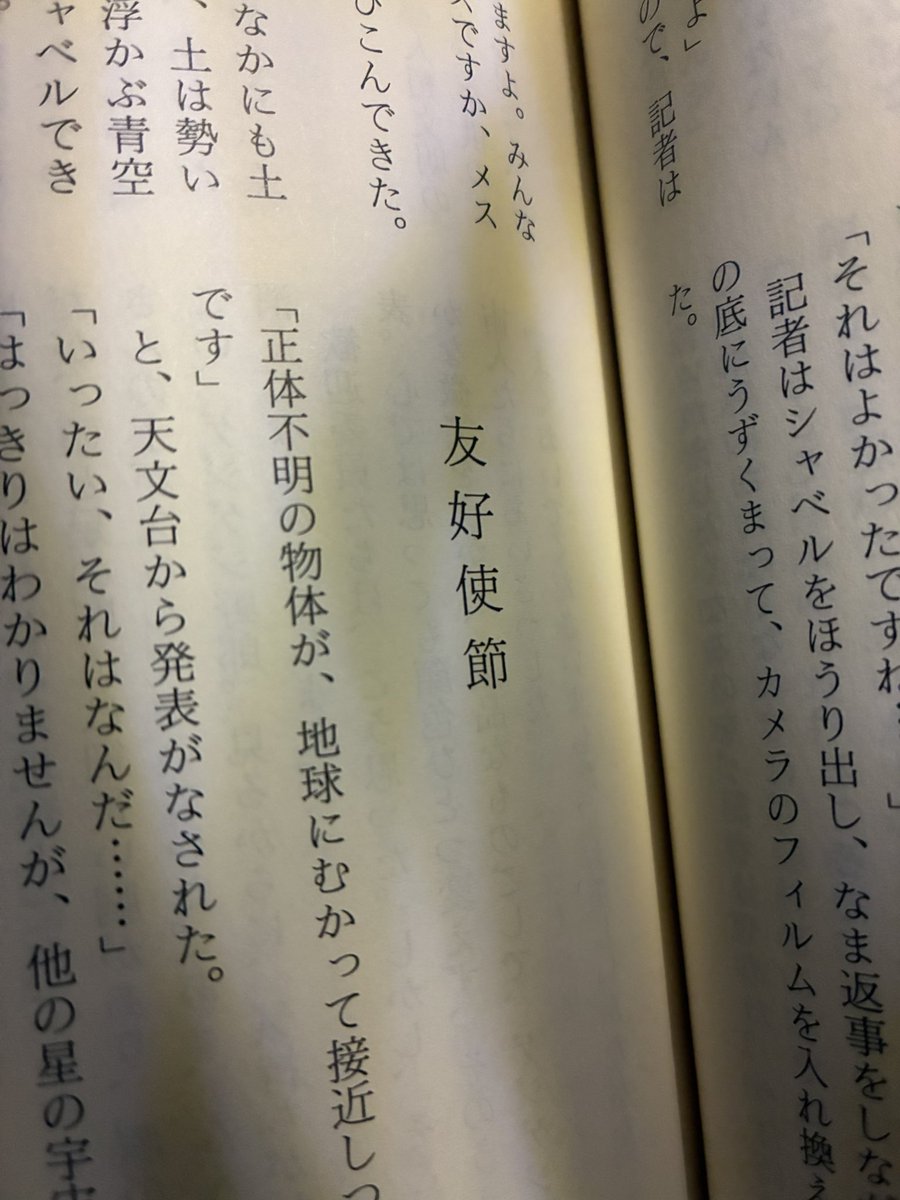 よ」
ので、記者は
ますよ。みんな
ですか、メス
こんできた。
なかにも土
、土は勢い
浮かぶ青空
ャベルでき
「それはよかったですね
記者はシャベルをほうり出し、なま返事をしな
の底にうずくまって、カメラのフィルムを入れ換え
た。
友好使節
「正体不明の物体が、地球にむかって接近しつ
です」
と、天文台から発表がなされた。
「いったい、それはなんだ……」
「はっきりはわかりませんが、他の星の宇宙